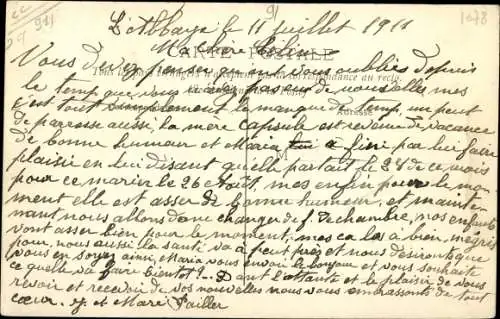 911
29
91
1078
L'Abbaye le 11 juillet 1911
Ma chère
CARTE POSTALE
Vous devez penser qu'on vous oubliés depuis
le temp que vous avez pas eu de nouvelles mes
c'est tout simplement le manque de temp, un peut
Adresse
de parresse aussi, la mère capsule est revenue de vacance
de bonne humeur et Maria a fini par lui faire
plaisir en lui disant qu'elle partait le 28 de ce mois
pour ce marier le 26 Août, mes enfin pour le mo-
ment elle est asser de bonne humeur, et mainte-
nant nous allons donc changer de f. de chambre, nos enfants
vont asser bien pour le moment, mes ca les à bien
pour, nous aussi la santé va à peut près et nous désirons que
vous en soyez ainsi, Maria vous envoi le bonjour et vous souhaite
ce quelle va faire bientot!.. Dant l'attente et le plaisir de vous
revoir et recevoir de vos nouvelles nous vous embrassons de tout
cœur. et Marie Failler